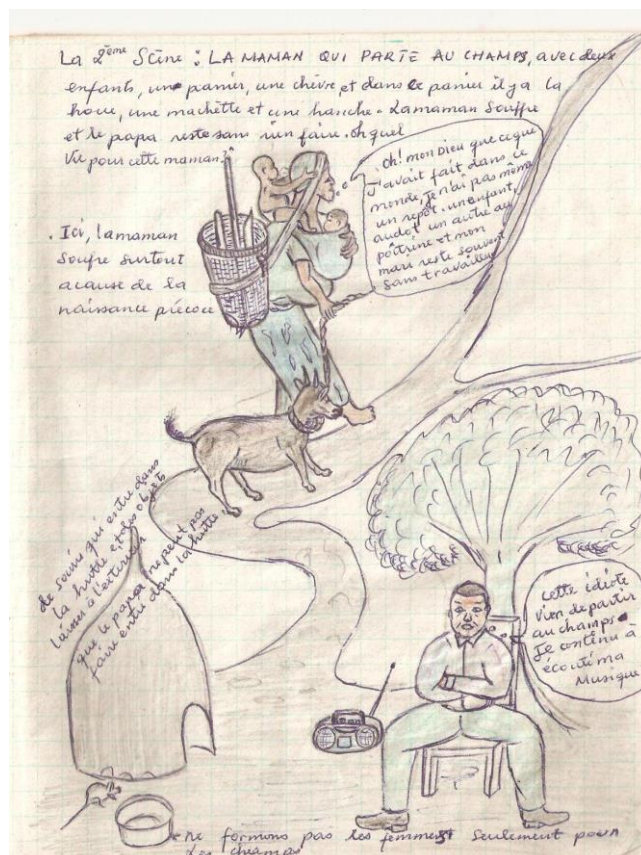 La 2ème Scène : LA MAMAN QUI PARTE AU CHAMPS, avec deux
enfants, une panier, une chèvre, et dans le panier il ya la
houe, une machette et une hanche. Lamaman Souffre
et le papa reste sans rien faire. oh quel
Vie pour cette maman?
Oh! mon Dieu que ceque
j'avait fait dans ce
monde, je n'ai pas même
un repot. un enfant
audot un autre au
poitrine et mon
mari reste souvent
sans travailler
. Ici, lamaman
soufre surtout
acause de la
naissance précoce
de souris qui entre dans
la hutte et des objets
laisses à l'exterieur
que le papa ne peut pas
faire entre dans la hutte.
cette idiote
vien de partir
au champs.
Je continu à
écouté ma
Musique
ne formons pas les femmes seulement pour
les champs